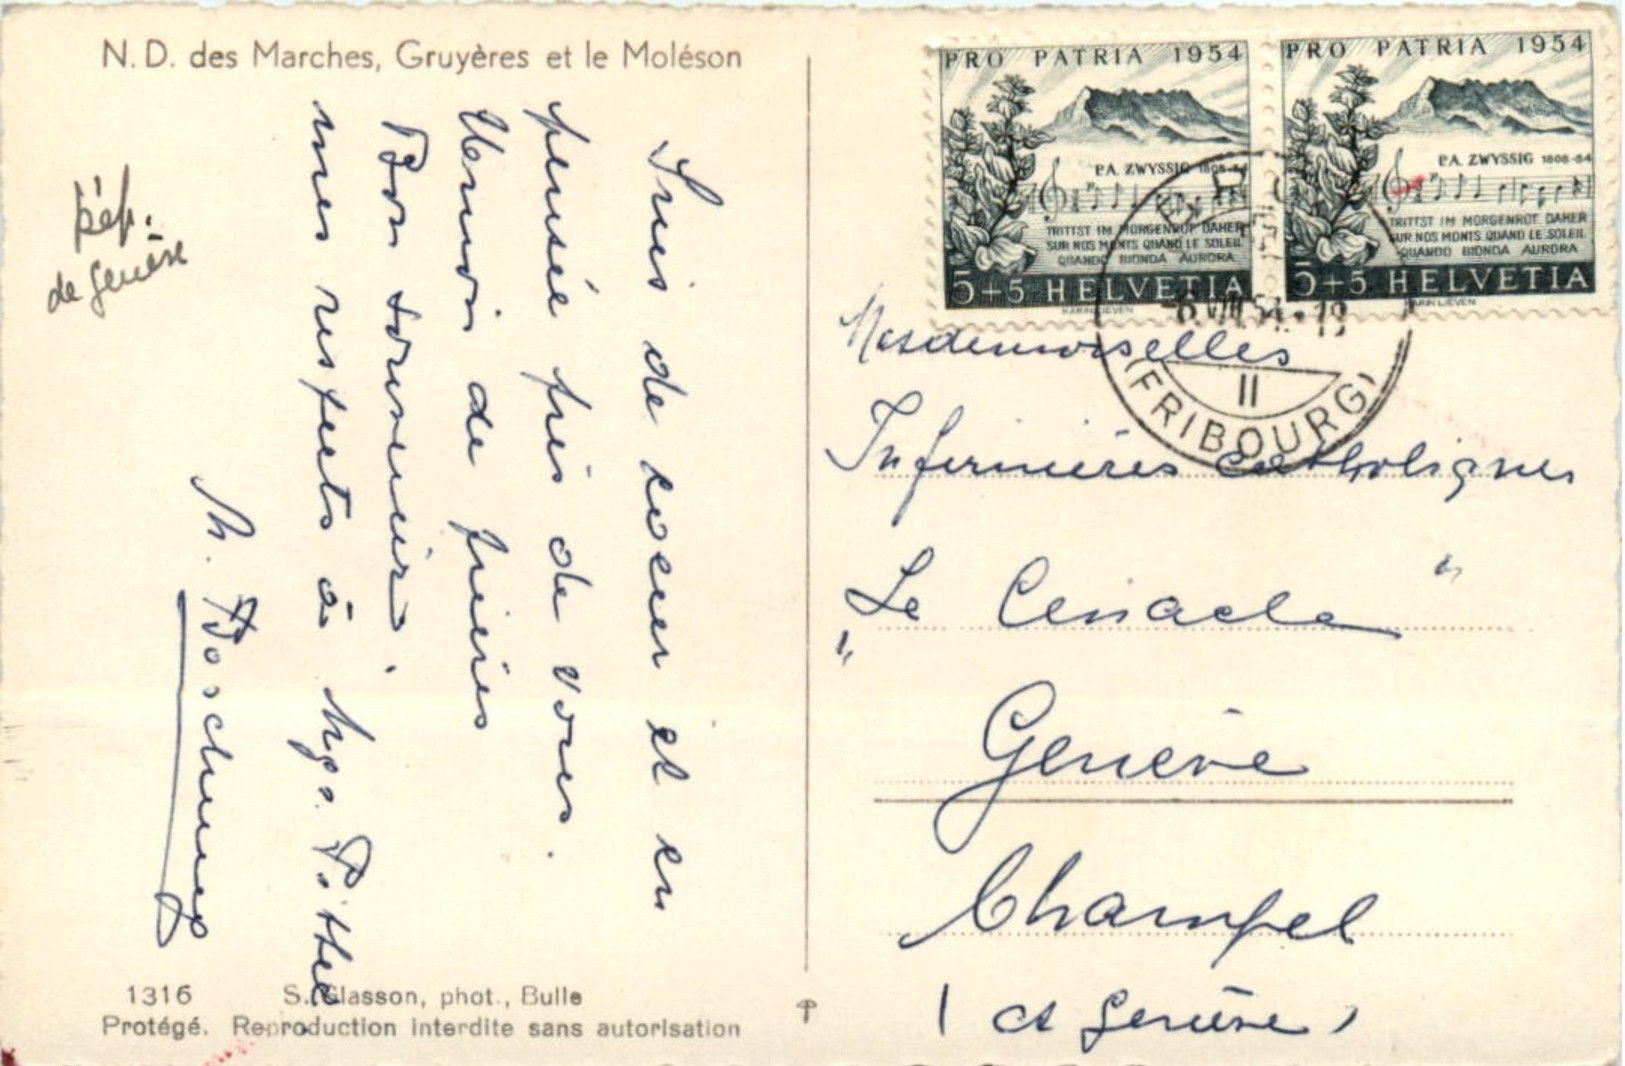 N. D. des Marches, Gruyères et le Moléson
Suis de coeur et en
pensée près de vous.
Union de prières
Bon souvenir.
mes respects à Mgr. Pittet
M. Boschung
pép.
de genève
1316 S. Glasson, phot., Bulle
Protégé. Reproduction interdite sans autorisation
PRO PATRIA 1954
P.A. ZWYSSIG 1808-54
TRITTST IM MORGENROT DAHER
SUR NOS MONTS QUAND LE SOLEIL
QUANDO BIONDA AURORA
5+5 HELVETIA
KARIN LIEVEN
PRO PATRIA 1954
P.A. ZWYSSIG 1808-54
TRITTST IM MORGENROT DAHER
SUR NOS MONTS QUAND LE SOLEIL
QUANDO BIONDA AURORA
5+5 HELVETIA
KARIN LIEVEN
VIII 54.-19
II
(FRIBOURG)
Mesdemoiselles
Infirmières catholiques
"Le Cénacle"
Genève
Champel
(ct Genève)